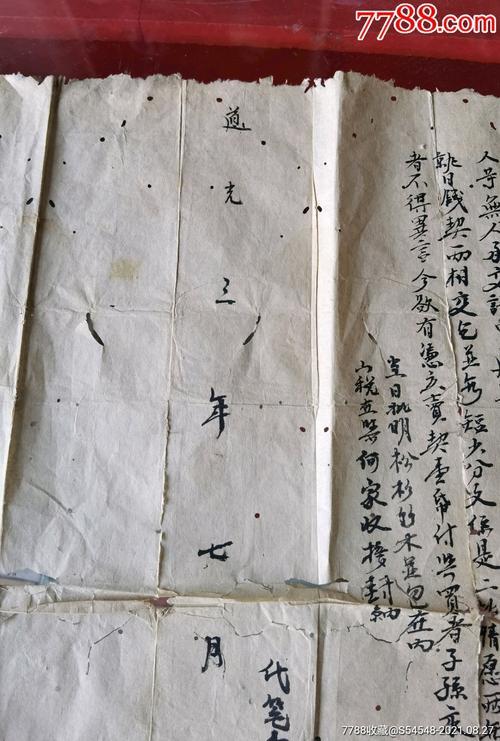 人等無人承交
就日錢契兩相交乞並無短少分文係是二情愿
者不得異言今欲有憑立賣契壹帋付與買者子孫
當日批明松杉竹木並包在內
山稅五
家收
納
道光三年七月
代筆
7788.com
7788收藏@S54548-2021.08.27